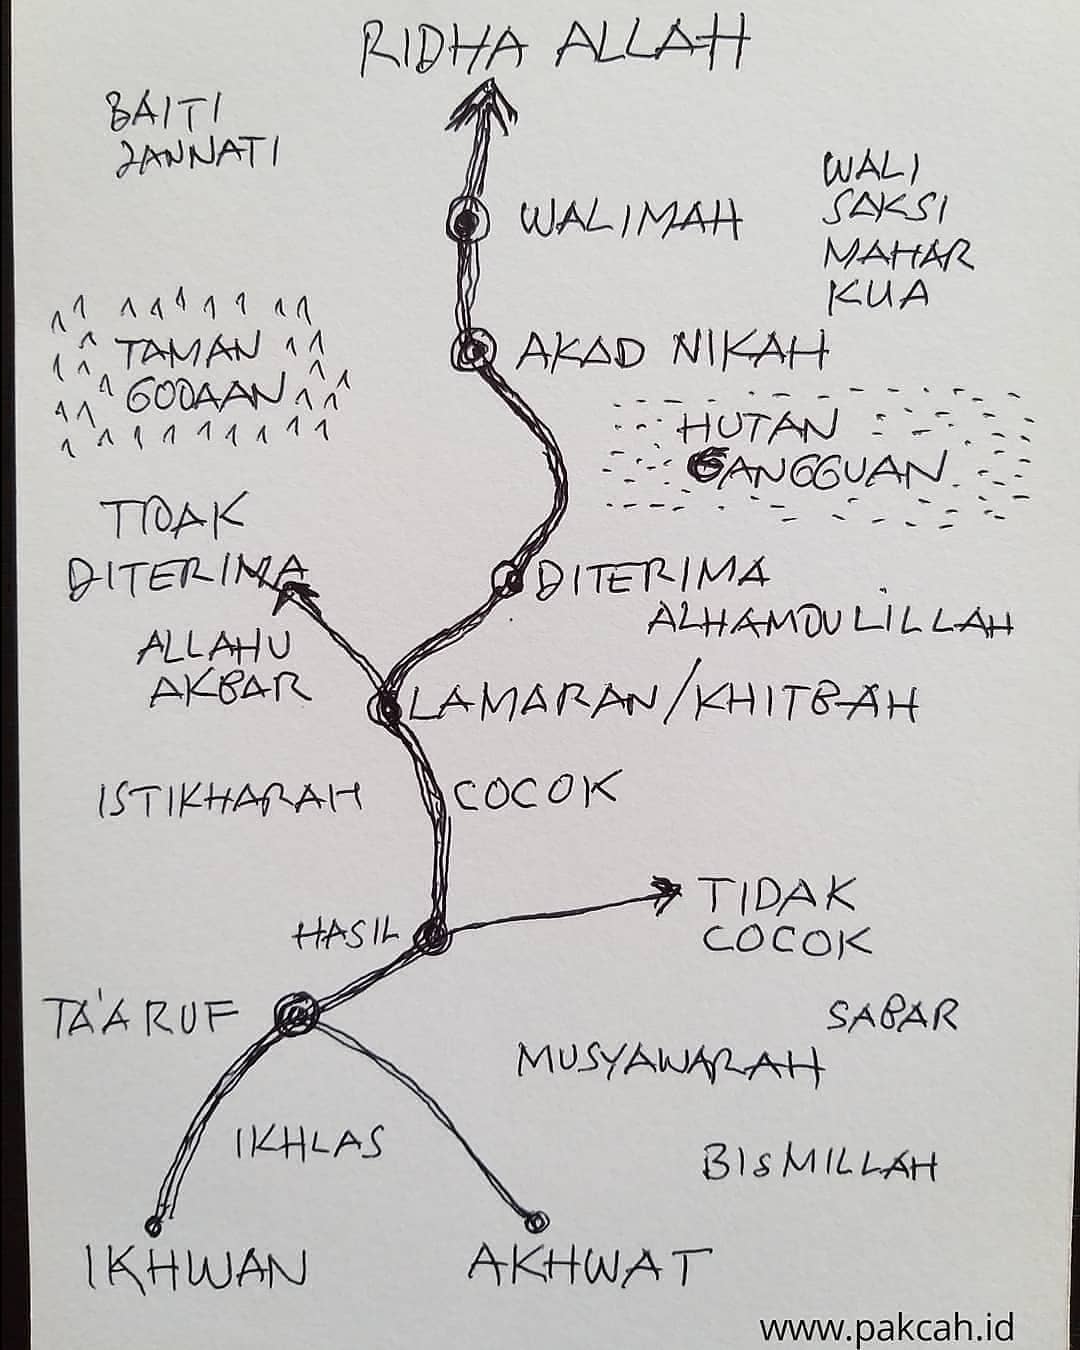 RIDHA ALLAH
BAITI
JANNATI
WALI
SAKSI
MAHAR
KUA
WALIMAH
AKAD NIKAH
TAMAN
GODAAN
HUTAN
GANGGUAN
TIDAK
DITERIMA
ALLAHU
AKBAR
DITERIMA
ALHAMDULILLAH
LAMARAN/KHITBAH
ISTIKHARAH
COCOK
HASIL
TIDAK
COCOK
TA'ARUF
SABAR
MUSYAWARAH
IKHLAS
BISMILLAH
IKHWAN
AKHWAT
www.pakcah.id